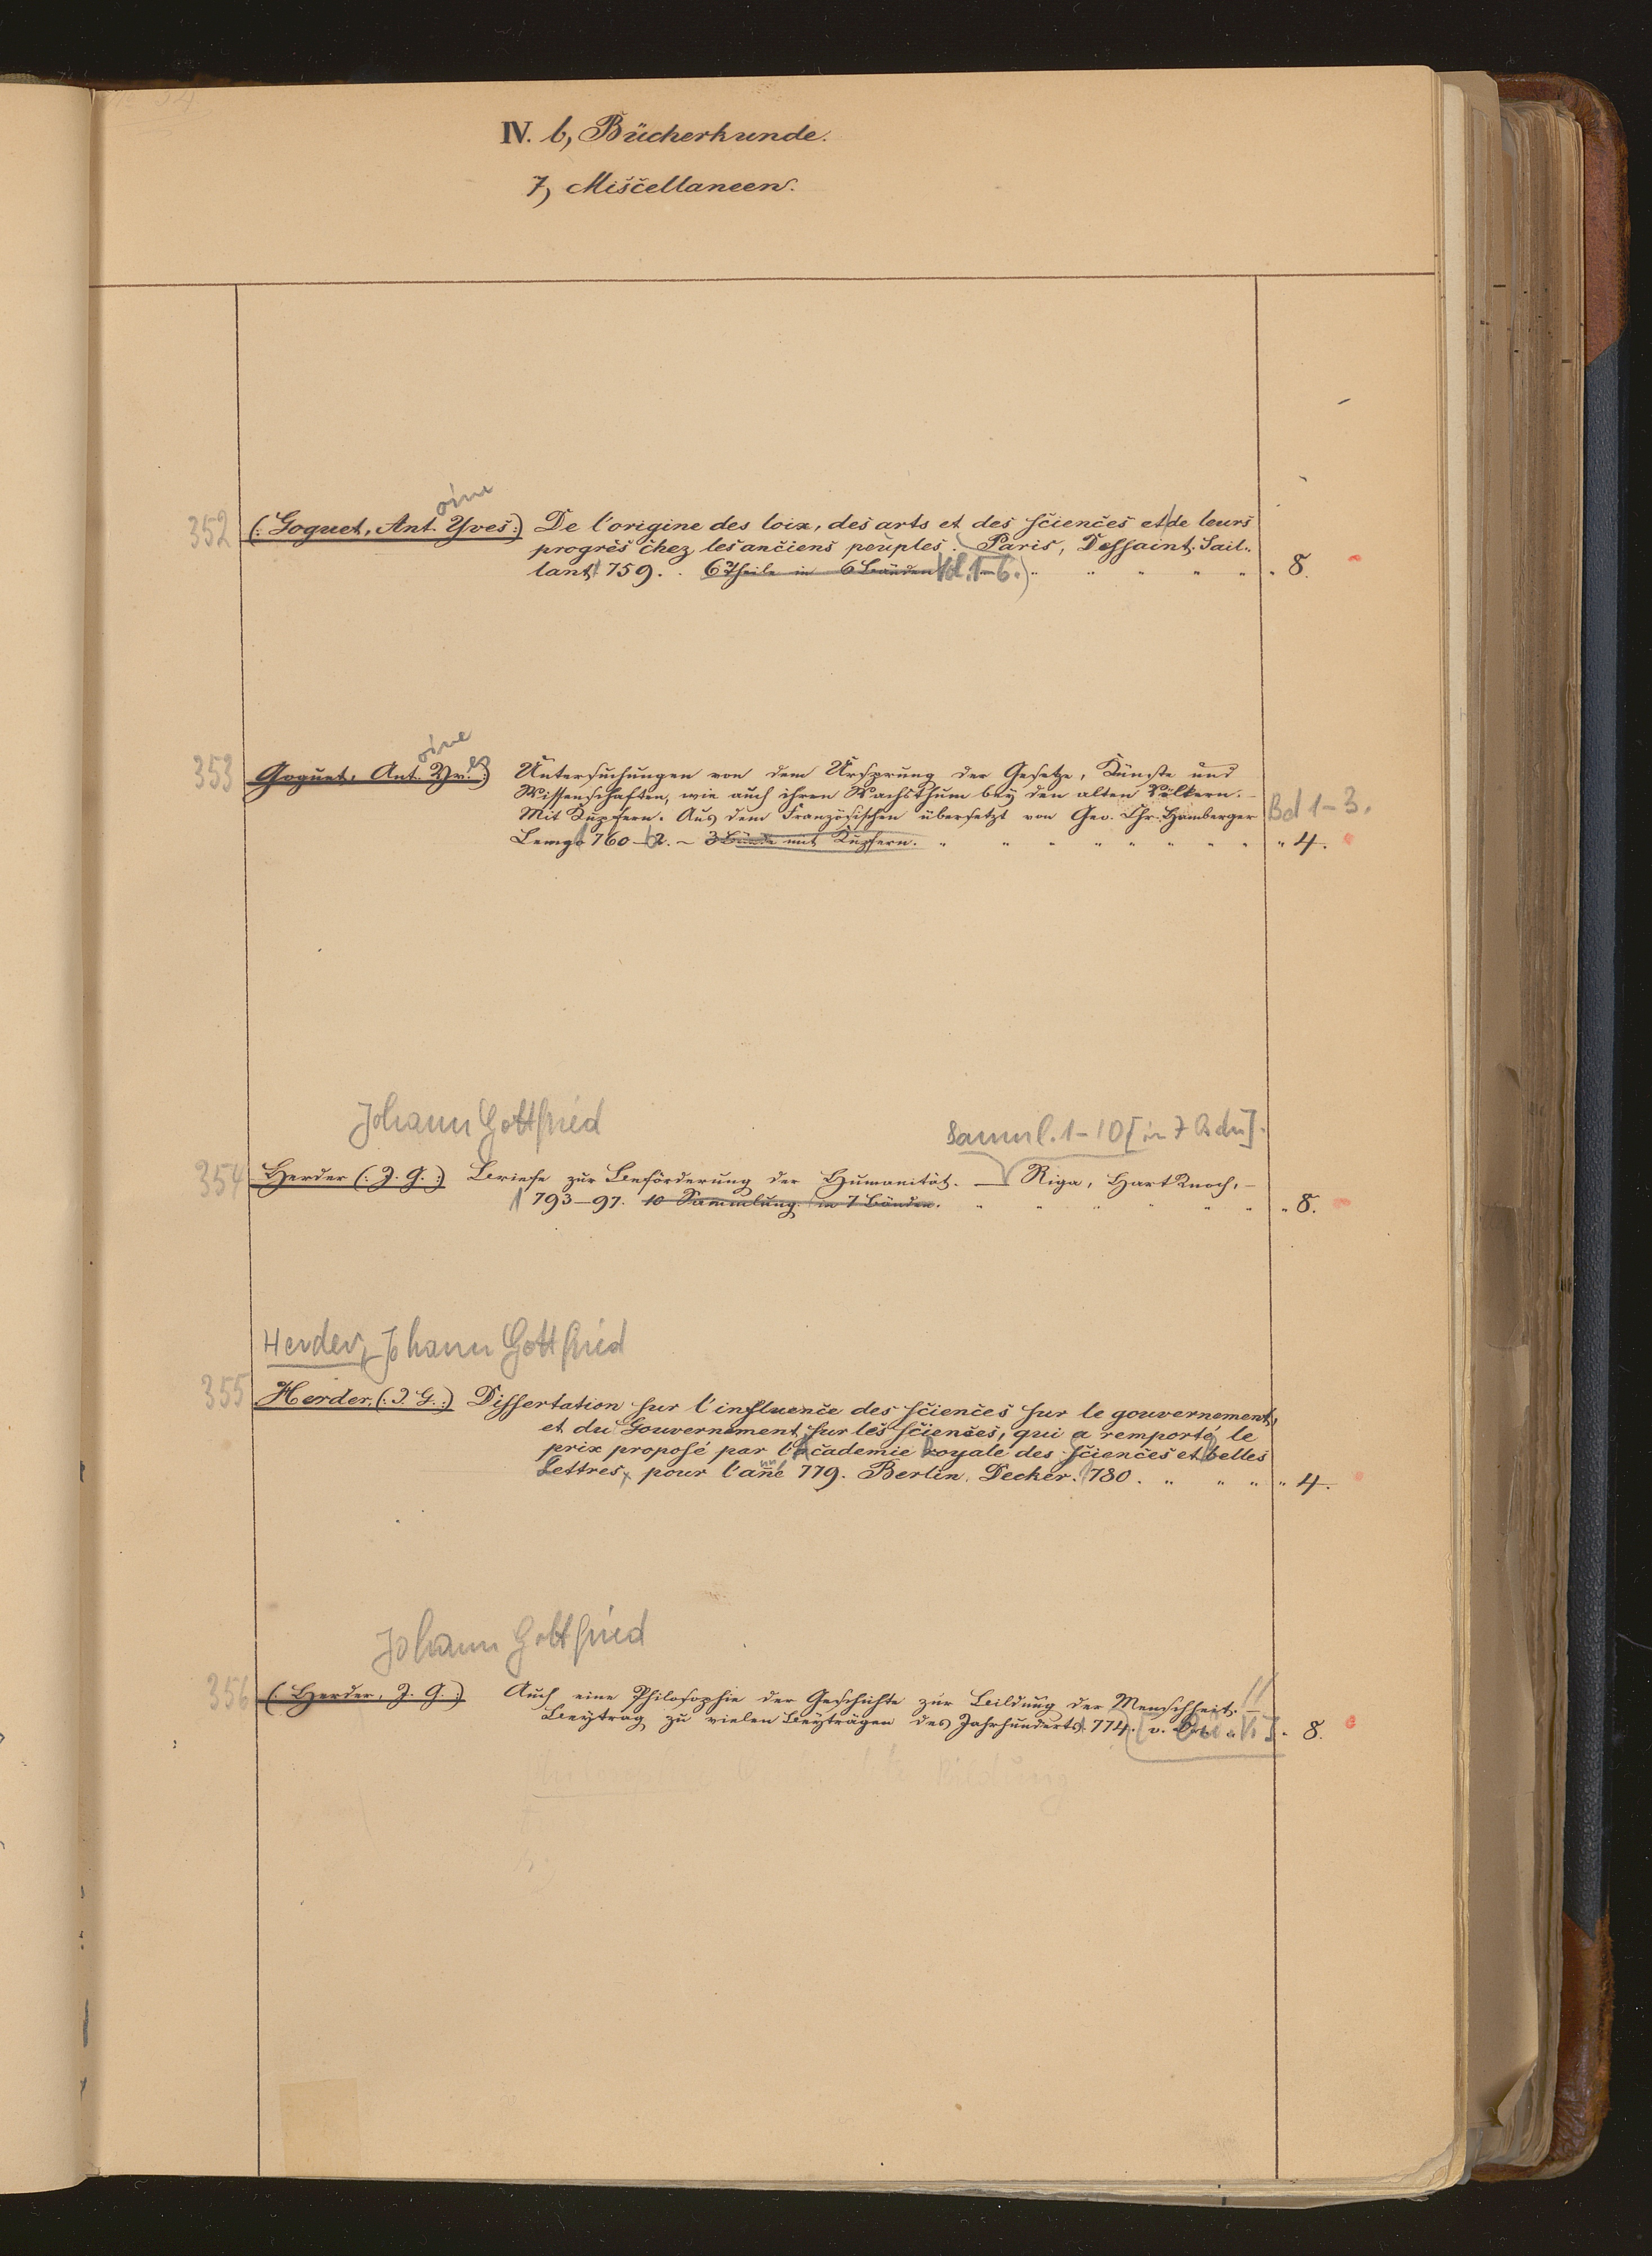 IV. b, Bücherkunde.
7, Miscellaneen.
oine
352 (: Goguet, Ant. Yves:) De l'origine des loix, des arts et des sciences et de leurs
progrès chez les anciens peuples. Paris, Dessaint. Sail-
lant 1759. 6 Theile in 6 Bänden Vol. 1-6.) " " " " " " 8.
oine
353 Goguet, Ant. Yv. es:) Untersuchungen von dem Ursprung der Gesetze, Künste und
Wissenschaften, wie auch ihren Wachsthum bey den alten Völkern. –
Mit Kupfern. Aus dem Französischen übersetzt von Geo. Chr. Hamberger Bd 1-3.
Lemgo 1760-62. – 3 Bände mit Kupfern. " " " " " " " " " 4.
Johann Gottfried Samml. 1-10 [in 7 Bdn].
354 Herder (: J. G. :) Briefe zur Beförderung der Humanität. — Riga, HartKnoch, –
1793-97. 10 Sammlung. in 7 Bänden. " " " " " " " 8.
Herder, Johann Gottfried
355 Herder, (: J. G. :) Dissertation sur l'influence des sciences sur le gouvernement,
et du Gouvernement sur les sciences, qui a remporté le
prix proposé par l'Academie Royale des Sciences et Belles
Lettres, pour l'année 1779. Berlin. Decker. 1780. " " " " 4.
Johann Gottfried
356 (: Herder, J. G. :) Auch eine Philosophie der Geschichte zur Bildung der Menschheit. –
Beytrag zu vielen Beyträgen des Jahrhunderts. 1774. " 8.
Bildung